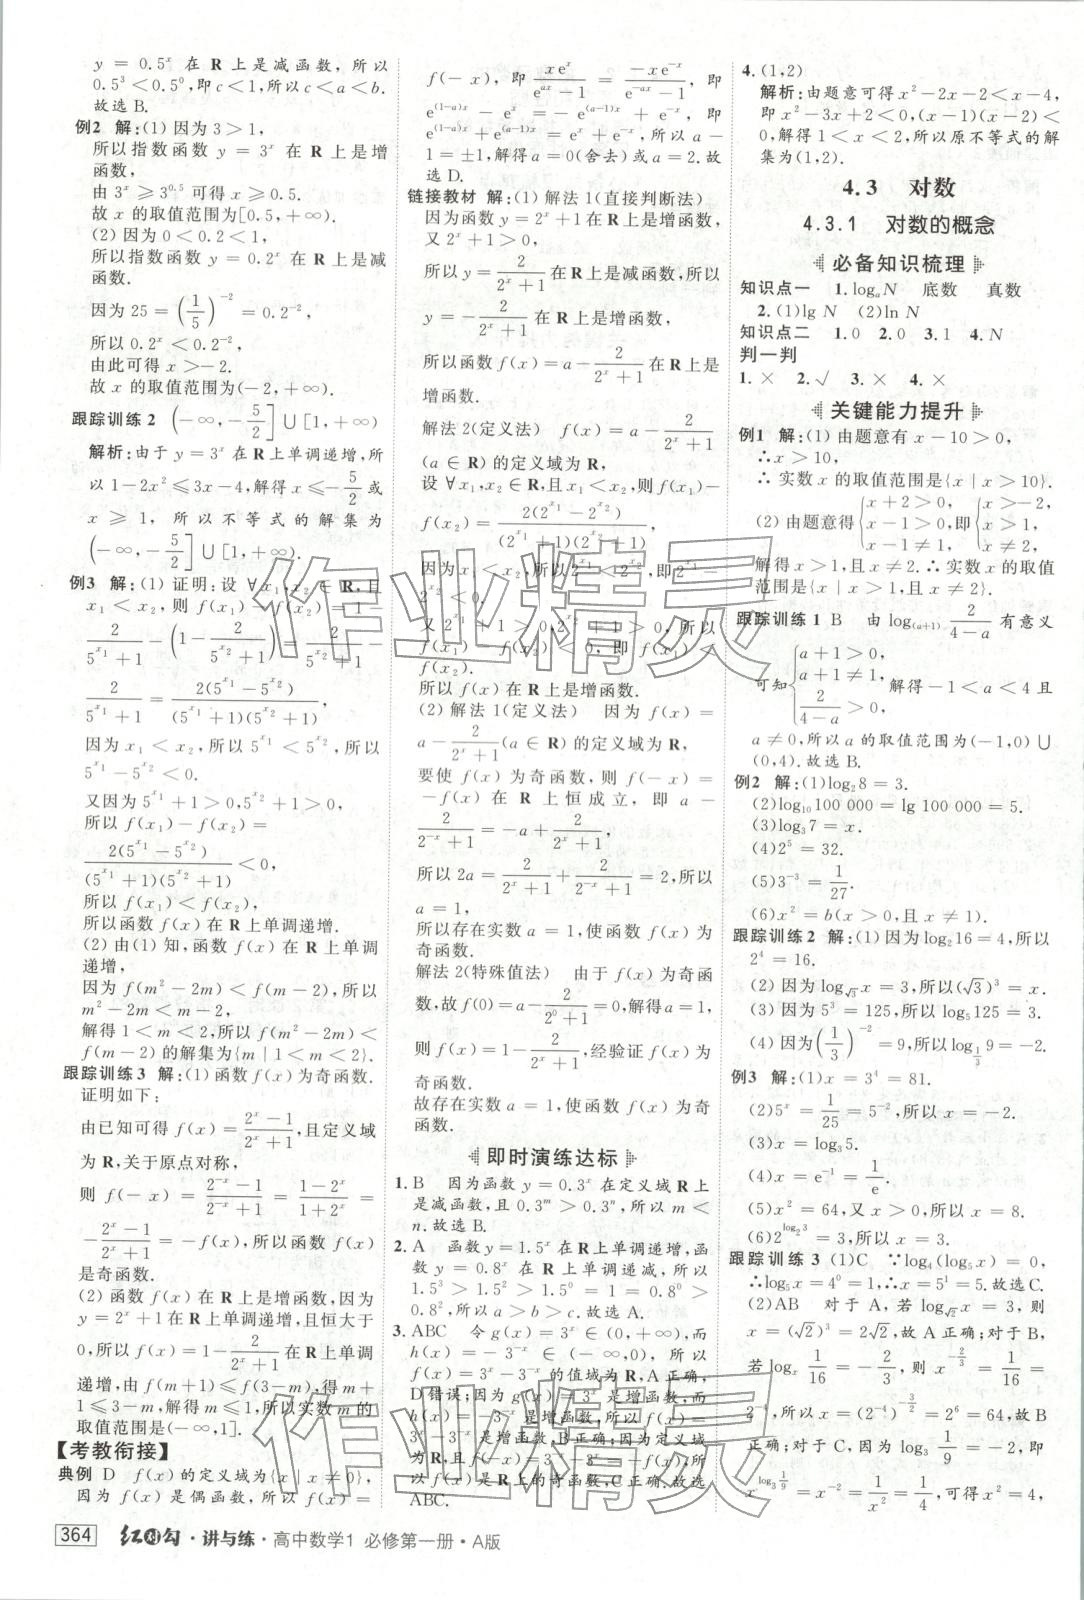 y = 0.5^x 在 R 上是减函数，所以
0.5^3＜0.5^0，即 c＜1，所以 c＜a＜b.
故选 B.
例2 解：(1) 因为 3＞1，
所以指数函数 y = 3^x 在 R 上是增
函数，
由 3^x ≥ 3^{0.5} 可得 x ≥ 0.5.
故 x 的取值范围为[0.5，+∞).
(2) 因为 0＜0.2＜1，
所以指数函数 y = 0.2^x 在 R 上是减
函数.
因为 25 = (1/5)^{-2} = 0.2^{-2}，
所以 0.2^x＜0.2^{-2}，
由此可得 x＞-2.
故 x 的取值范围为(-2，+∞).
跟踪训练 2 (-∞，-5/2]∪[1，+∞)
解析：由于 y = 3^x 在 R 上单调递增，所
以 1-2x^2 ≤ 3x-4，解得 x ≤ -5/2 或
x ≥ 1，所以不等式的解集为
(-∞，-5/2]∪[1，+∞).
例3 解：(1) 证明：设 ∀x_1，x_2 ∈ R，且
x_1＜x_2，则 f(x_1) - f(x_2) = 1 -
2/(5^{x_1}+1) - (1 - 2/(5^{x_2}+1)) = 2/(5^{x_2}+1) -
2/(5^{x_1}+1) = 2(5^{x_1}-5^{x_2})/((5^{x_1}+1)(5^{x_2}+1))
因为 x_1＜x_2，所以 5^{x_1}＜5^{x_2}，所以
5^{x_1}-5^{x_2}＜0.
又因为 5^{x_1}+1＞0，5^{x_2}+1＞0，
所以 f(x_1)-f(x_2) =
2(5^{x_1}-5^{x_2})/((5^{x_1}+1)(5^{x_2}+1))＜0，
所以 f(x_1)＜f(x_2)，
所以函数 f(x) 在 R 上单调递增.
(2) 由(1) 知，函数 f(x) 在 R 上单调
递增，
因为 f(m^2-2m)＜f(m-2)，所以
m^2-2m＜m-2，
解得 1＜m＜2，所以 f(m^2-2m)＜
f(m-2) 的解集为{m | 1＜m＜2}.
跟踪训练 3 解：(1) 函数 f(x) 为奇函数.
证明如下：
由已知可得 f(x) = (2^x-1)/(2^x+1)，且定义域
为 R，关于原点对称，
则 f(-x) = (2^{-x}-1)/(2^{-x}+1) = (1-2^x)/(1+2^x) =
-(2^x-1)/(2^x+1) = -f(x)，所以函数 f(x)
是奇函数.
(2) 函数 f(x) 在 R 上是增函数，因为
y = 2^x+1 在 R 上单调递增，且恒大于
0，所以 f(x) = 1 - 2/(2^x+1) 在 R 上单调
递增，由 f(m+1) ≤ f(3-m)，得 m+
1 ≤ 3-m，解得 m ≤ 1，所以实数 m 的
取值范围是(-∞，1].
【考教衔接】
典例 D f(x) 的定义域为{x | x ≠ 0}，
因为 f(x) 是偶函数，所以 f(x) =
f(-x)，即 xe^x/(e^{ax}-1) = -xe^{-x}/(e^{-ax}-1)，即
e^{(1-a)x} - e^x = e^{-(1-a)x} + e^{-x}，即
e^{(1-a)x} + e^{(a-1)x} = e^x + e^{-x}，所以 a-
1 = ±1，解得 a = 0(舍去) 或 a = 2. 故
选 D.
链接教材 解：(1) 解法 1(直接判断法)
因为函数 y = 2^x+1 在 R 上是增函数，
又 2^x+1＞0，
所以 y = 2/(2^x+1) 在 R 上是减函数，所以
y = -2/(2^x+1) 在 R 上是增函数，
所以函数 f(x) = a - 2/(2^x+1) 在 R 上是增
函数.
解法 2(定义法) f(x) = a - 2/(2^x+1)
(a ∈ R) 的定义域为 R，
设 ∀x_1，x_2 ∈ R，且 x_1＜x_2，则 f(x_1)-
f(x_2) = 2(2^{x_1}-2^{x_2})/((2^{x_1}+1)(2^{x_2}+1))，
因为 x_1＜x_2，所以 2^{x_1}＜2^{x_2}，即 2^{x_1}-
2^{x_2}＜0.
又 2^{x_1}+1＞0，2^{x_2}+1＞0，所以
f(x_1) - f(x_2)＜0，即 f(x_1)＜
f(x_2).
所以 f(x) 在 R 上是增函数.
(2) 解法 1(定义法) 因为 f(x) =
a - 2/(2^x+1) (a ∈ R) 的定义域为 R，
要使 f(x) 为奇函数，则 f(-x) =
-f(x) 在 R 上恒成立，即 a-
2/(2^{-x}+1) = -a + 2/(2^x+1)，
所以 2a = 2/(2^x+1) + 2/(2^{-x}+1) = 2，所以
a = 1，
所以存在实数 a = 1，使函数 f(x) 为
奇函数.
解法 2(特殊值法) 由于 f(x) 为奇函
数，故 f(0) = a - 2/(2^0+1) = 0，解得 a = 1，
则 f(x) = 1 - 2/(2^x+1)，经验证 f(x) 为
奇函数.
故存在实数 a = 1，使函数 f(x) 为奇
函数.
即时演练达标
1. B 因为函数 y = 0.3^x 在定义域 R 上
是减函数，且 0.3^m＞0.3^n，所以 m＜
n. 故选 B.
2. A 函数 y = 1.5^x 在 R 上单调递增，函
数 y = 0.8^x 在 R 上单调递减，所以
1.5^3＞1.5^2＞1.5^0 = 1 = 0.8^0＞
0.8^2，所以 a＞b＞c. 故选 A.
3. ABC 令 g(x) = 3^x ∈ (0，+∞)，而
h(x) = -3^{-x} ∈ (-∞，0)，所以
f(x) = 3^x - 3^{-x} 的值域为 R，A 正确，
D 错误；因为 g(x) = 3^x 是增函数，而
h(x) = -3^{-x} 是增函数，所以 f(x) =
3^x-3^{-x} 是增函数，B 正确；因为定义域
为 R，且 f(-x) = 3^{-x}-3^x = -f(x)，所
以 f(x) 是 R 上的奇函数，C 正确. 故选
ABC.
4. (1，2)
解析：由题意可得 x^2-2x-2＜x-4，
即 x^2-3x+2＜0，(x-1)(x-2)＜
0，解得 1＜x＜2，所以原不等式的解
集为(1，2).
4.3 对数
4.3.1 对数的概念
必备知识梳理
知识点一 1. log_a N 底数 真数
2. (1)lg N (2)ln N
知识点二 1. 0 2. 0 3. 1 4. N
判一判
1. × 2. √ 3. × 4. ×
关键能力提升
例1 解：(1) 由题意有 x-10＞0，
∴x＞10，
∴ 实数 x 的取值范围是{x | x＞10}.
(2) 由题意得 {x+2＞0，x-1＞0，x-1≠1， 即 {x＞-2，x＞1，x≠2，
解得 x＞1，且 x ≠ 2. ∴ 实数 x 的取值
范围是{x | x＞1，且 x ≠ 2}.
跟踪训练 1 B 由 log_{(a+1)} 2/(4-a) 有意义
可知 {a+1＞0，a+1≠1，2/(4-a)＞0， 解得 -1＜a＜4 且
a ≠ 0，所以 a 的取值范围为(-1，0)∪
(0，4). 故选 B.
例2 解：(1)log_2 8 = 3.
(2)log_{10} 100 000 = lg 100 000 = 5.
(3)log_3 7 = x.
(4)2^5 = 32.
(5)3^{-3} = 1/27.
(6)x^2 = b(x＞0，且 x ≠ 1).
跟踪训练 2 解：(1) 因为 log_2 16 = 4，所以
2^4 = 16.
(2) 因为 log_{√3} x = 3，所以(√3)^3 = x.
(3) 因为 5^3 = 125，所以 log_5 125 = 3.
(4) 因为 (1/3)^{-2} = 9，所以 log_{1/3} 9 = -2.
例3 解：(1)x = 3^4 = 81.
(2)5^x = 1/25 = 5^{-2}，所以 x = -2.
(3)x = log_3 5.
(4)x = e^{-1} = 1/e.
(5)x^2 = 64，又 x＞0，所以 x = 8.
(6)2^{log_2 3} = 3，所以 x = 3.
跟踪训练 3 (1)C ∵log_4(log_5 x) = 0，
∴log_5 x = 4^0 = 1，∴x = 5^1 = 5. 故选 C.
(2)AB 对于 A，若 log_{√2} x = 3，则
x = (√2)^3 = 2√2，故 A 正确；对于 B，
若 log_x 1/16 = -2/3，则 x^{-2/3} = 1/16 =
2^{-4}，所以 x = (2^{-4})^{-3/2} = 2^6 = 64，故 B
正确；对于 C，因为 log_3 1/9 = -2，即
x^{log_3 1/9} = x^{-2} = 1/x^2 = 1/4，所以 x^2 = 4，
364 红对勾·讲与练·高中数学1 必修第一册·A版
作业精灵
作业精灵